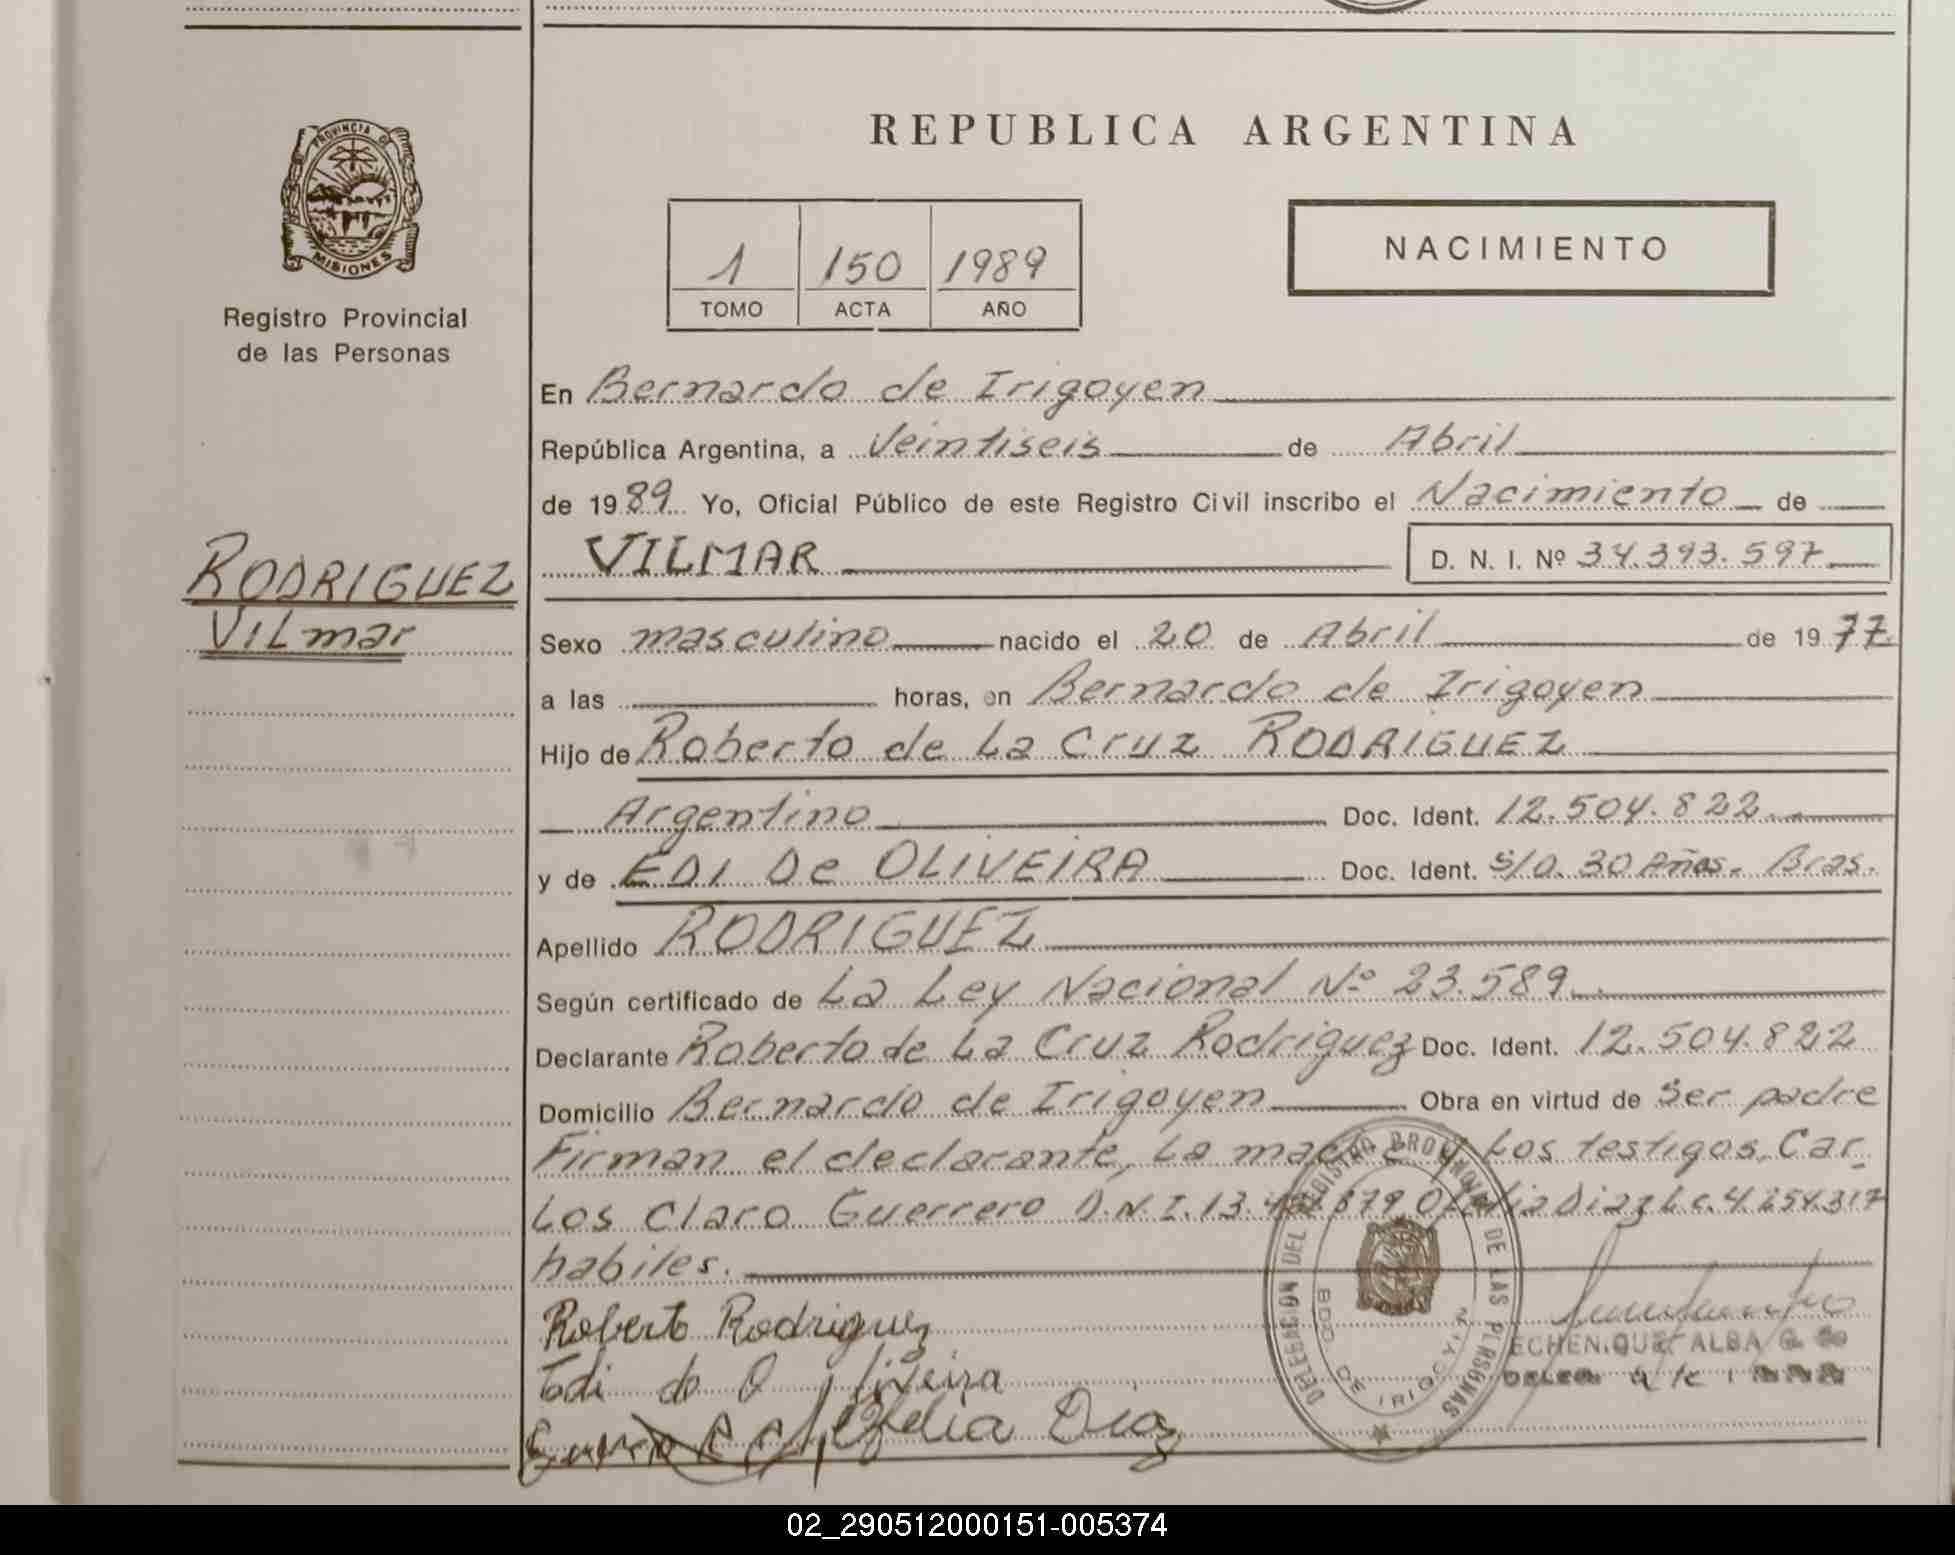 REPUBLICA ARGENTINA
PROVINCIA DE
MISIONES
Registro Provincial
de las Personas
1 150 1989
TOMO ACTA AÑO
NACIMIENTO
RODRIGUEZ
Vilmar
En Bernardo de Irigoyen
República Argentina, a Veintiseis de Abril
de 1989 Yo, Oficial Público de este Registro Civil inscribo el Nacimiento de
VILMAR D. N. I. Nº 34.393.597
Sexo masculino nacido el 20 de Abril de 1977
a las horas, en Bernardo de Irigoyen
Hijo de Roberto de La Cruz RODRIGUEZ
Argentino Doc. Ident. 12.504.822
y de EDI De OLIVEIRA Doc. Ident. S/D. 30 Años. Bras.
Apellido RODRIGUEZ
Según certificado de La Ley Nacional Nº 23.589
Declarante Roberto de La Cruz Rodriguez Doc. Ident. 12.504.822
Domicilio Bernardo de Irigoyen Obra en virtud de Ser padre
Firman el declarante, La madre y Los testigos, Car_
Los Claro Guerrero D.N.I. 13. Ofelia Diaz L.c. 4.254.317
habiles.
Roberto Rodriguez
Edi de Oliveira
Ofelia Diaz
DELEGACION DEL REGISTRO PROVINCIAL DE LAS PERSONAS
BDO. DE IRIGOYEN
ECHENIQUE ALBA G.
02_290512000151-005374